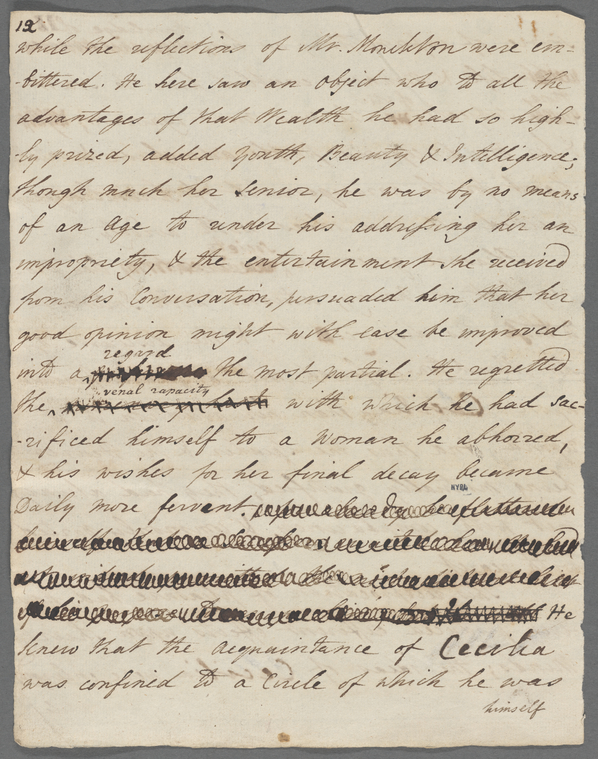 12
while the reflections of Mr. Monckton were em=
=bittered. He here saw an object who to all the
advantages of that Wealth he had so high=
=ly prized, added Youth, Beauty & Intelligence;
though much her senior, he was by no means
of an age to render his addressing her an
impropriety, & the entertainment she received
from his Conversation, persuaded him that her
good opinion might with ease be improved
regard
into a the most partial. He regretted
venal rapacity
the with which he had sac=
=rificed himself to a Woman he abhorred,
& his wishes for her final decay became
NYPL
Daily more fervent.
He
knew that the acquaintance of Cecilia
was confined to a Circle of which he was
himself